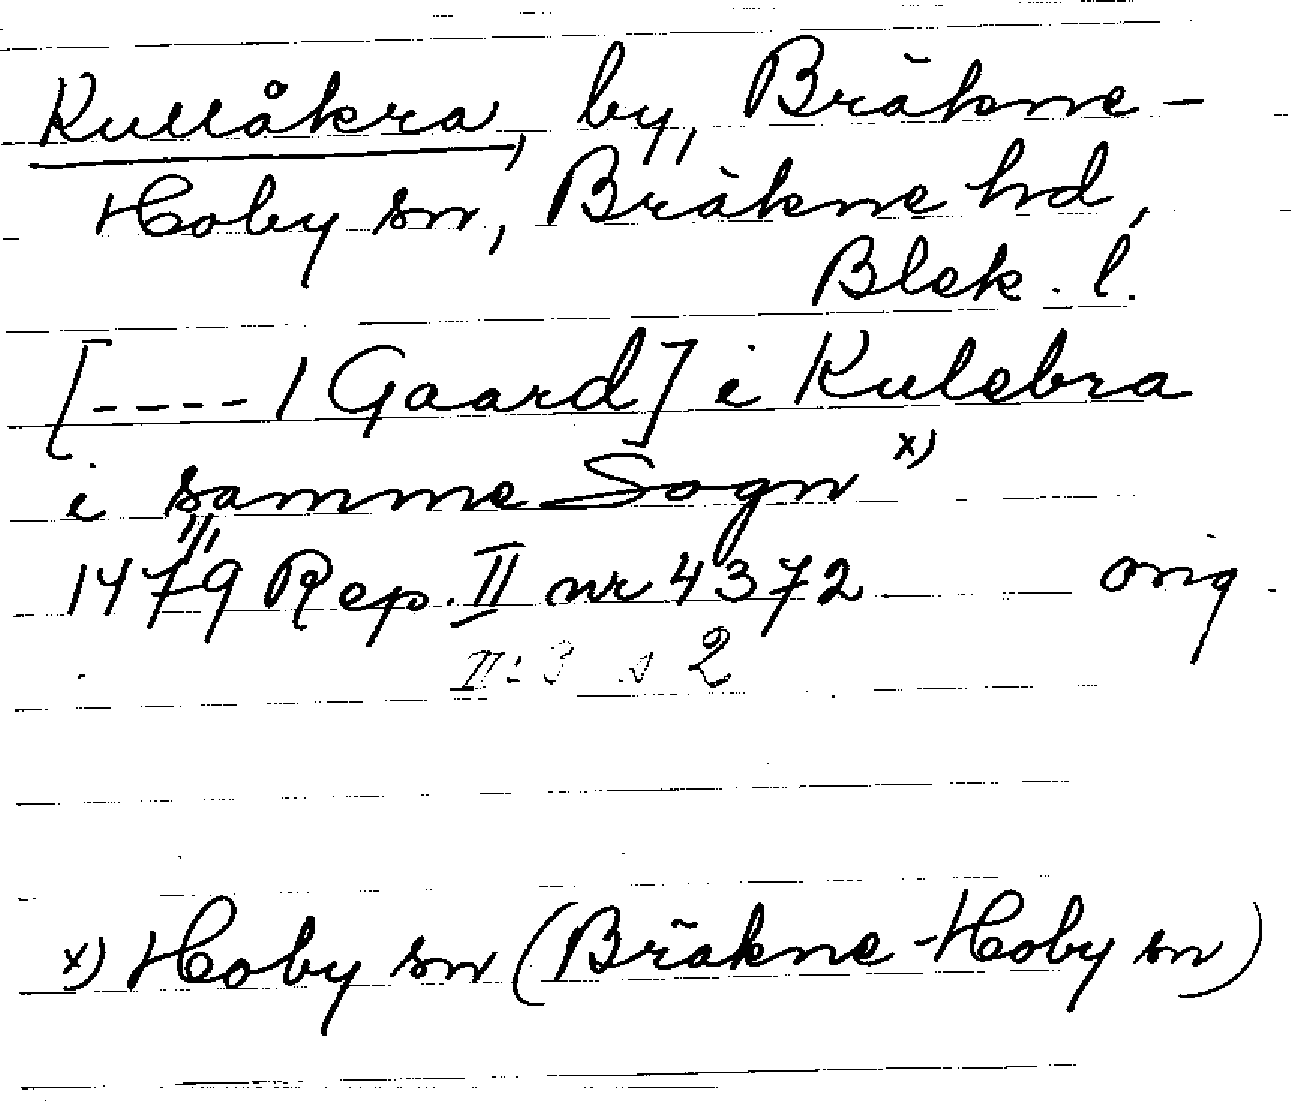 Kullåkra, by, Bräkne-
Hoby sn, Bräkne hd,
Blek. l.
[---- 1 Gaard] i Kulebra
i samme Sogn x)
1479 Rep. II nr 4372 orig.
II:3 s 2
x) Hoby sn (Bräkne-Hoby sn)